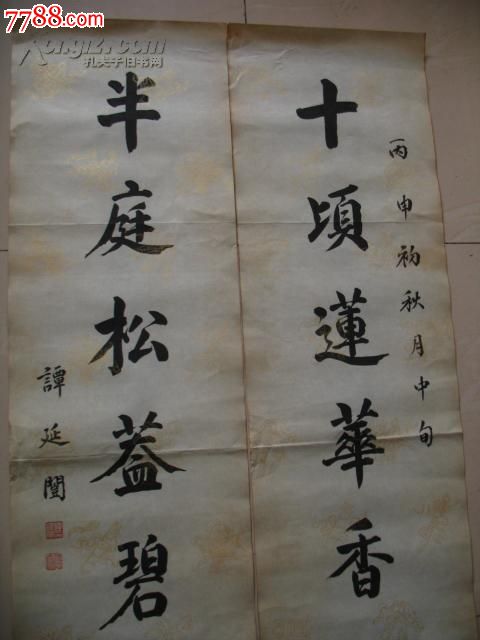 7788.com
孔夫子旧书网
丙申初秋月中旬
十頃蓮華香
半庭松蓋碧
譚延闓